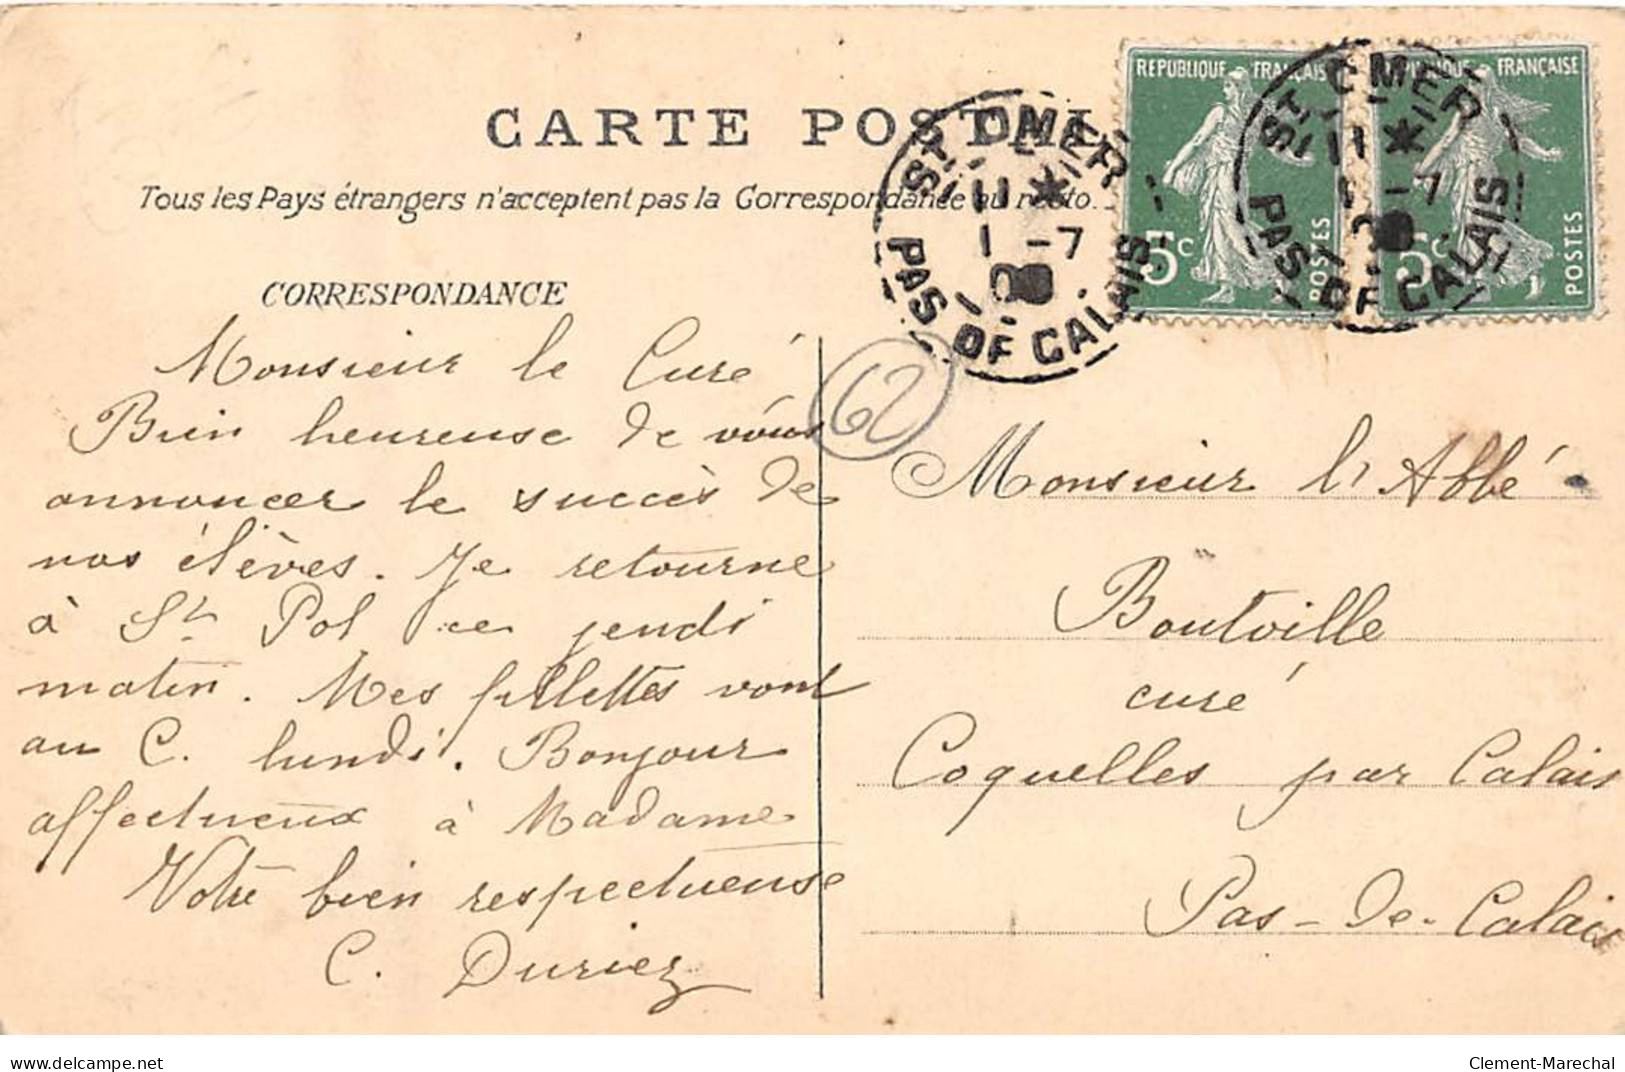 CARTE POSTALE
Tous les Pays étrangers n'acceptent pas la Correspondance au recto.
CORRESPONDANCE
Monsieur le Curé
Bien heureuse de vous
annoncer le succès de
nos élèves. Je retourne
à St Pol ce jeudi
matin. Mes fillettes vont
au C. lundi. Bonjour
affectueux à Madame
Votre bien respectueuse
C. Duriez
62
ST. OMER
11 *
1 -7
PAS DE CALAIS
REPUBLIQUE FRANÇAISE
5c
POSTES
ST. OMER
11 *
1 -7
PAS DE CALAIS
REPUBLIQUE FRANÇAISE
5c
POSTES
Monsieur l'Abbé
Boutoille
curé
Coquelles par Calais
Pas-de-Calais
www.delcampe.net
Clement-Marechal